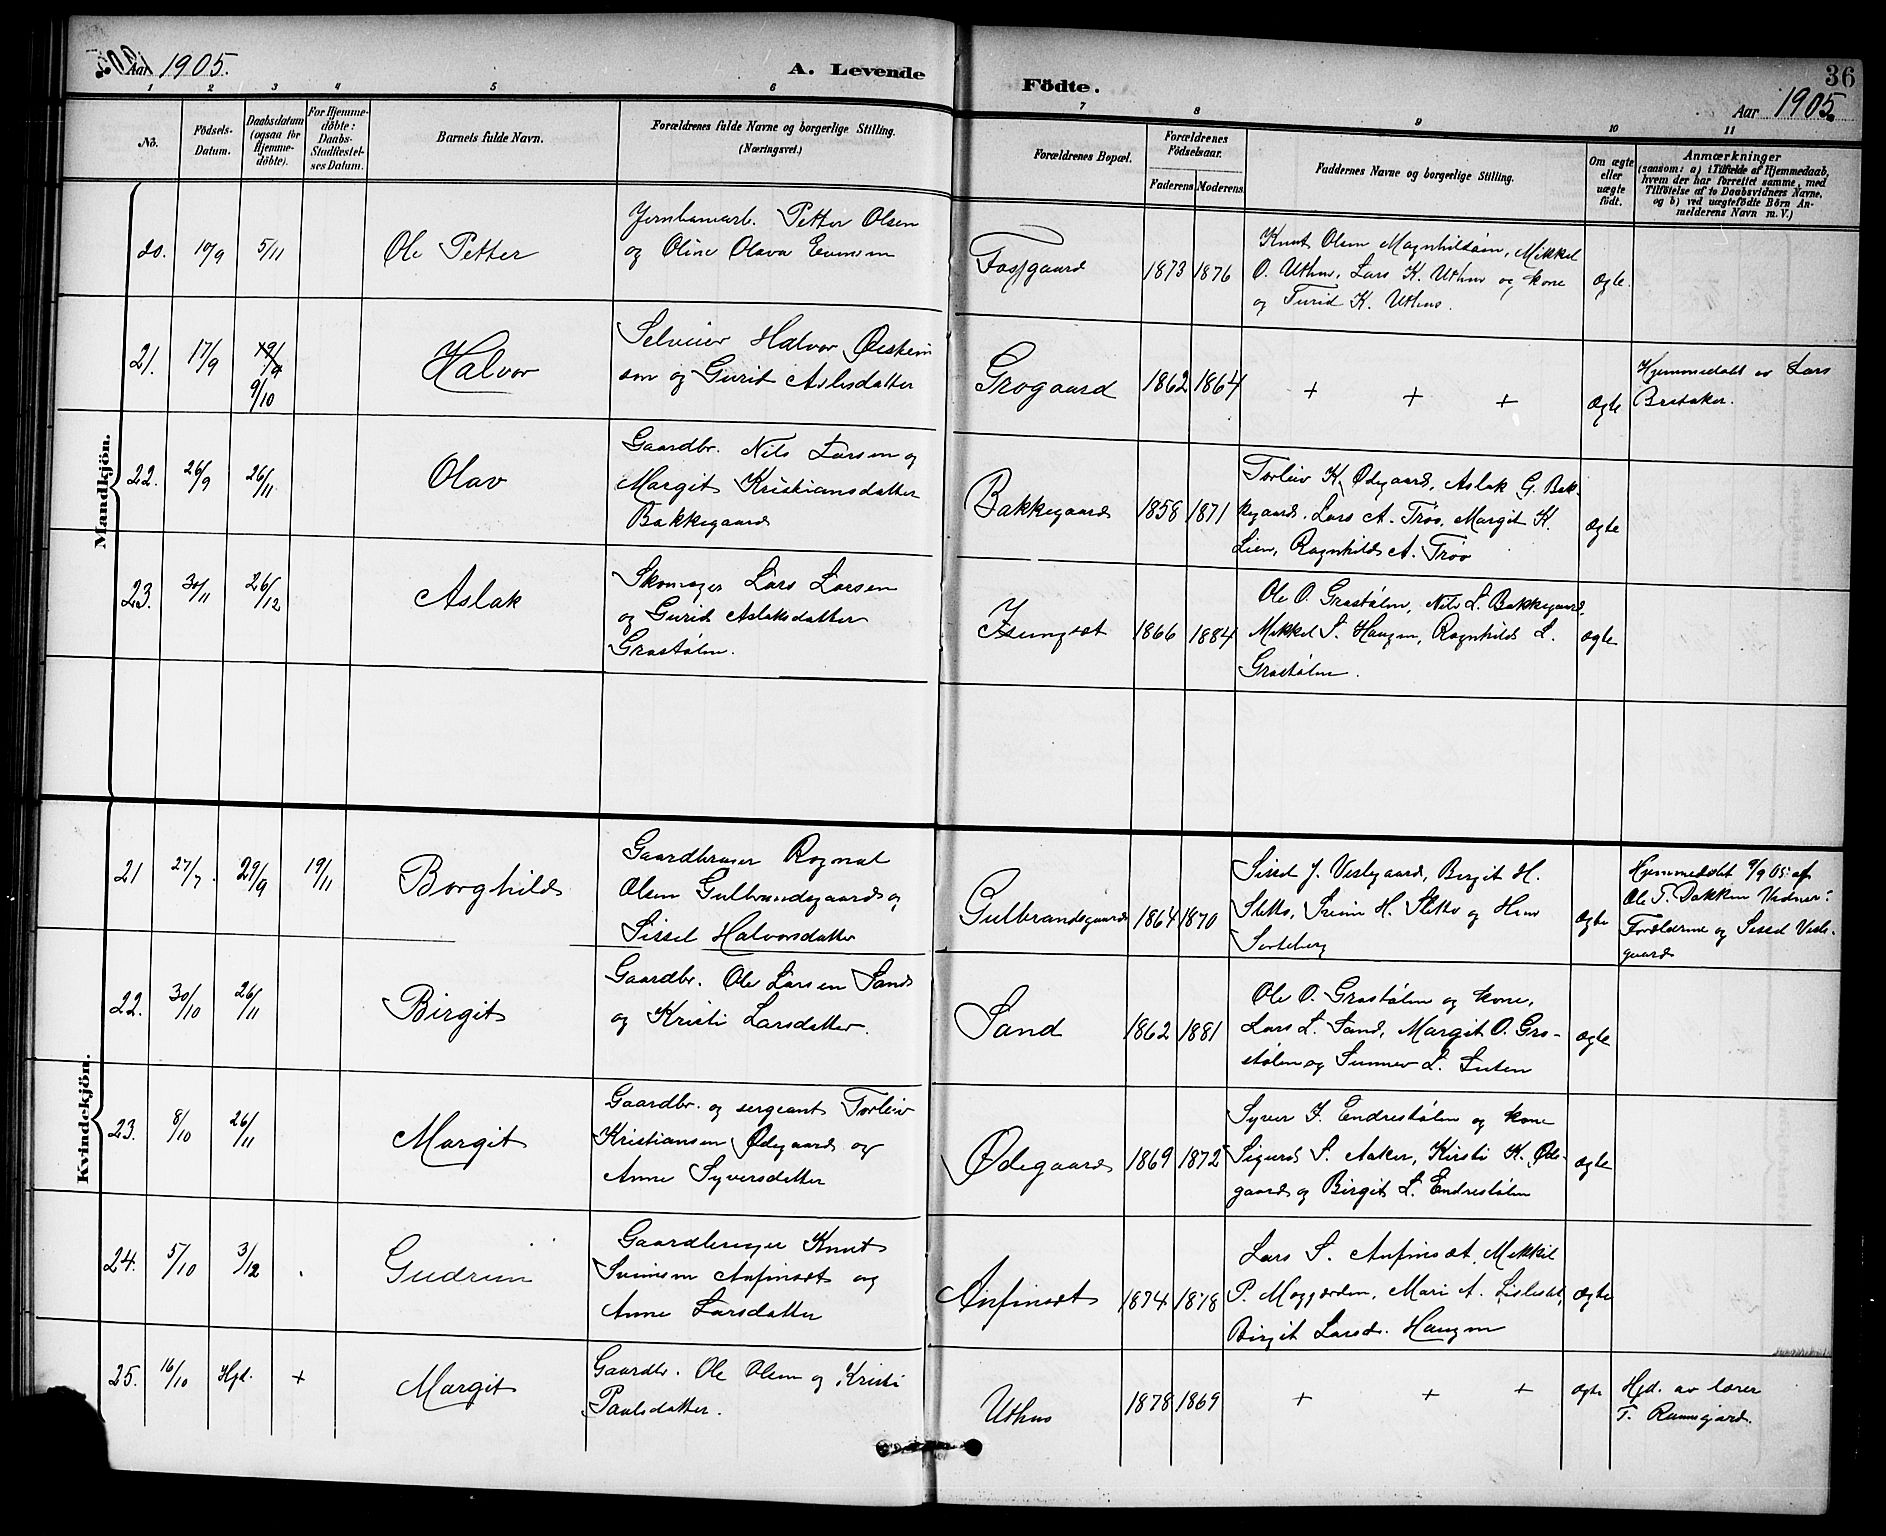 Aar 1905.
A. Levende
Födte.
36
Aar 1905.
1 2 3 4 5 6 7 8 9 10 11
No.
Födsels-
Datum.
Daabsdatum
(ogsaa for
Hjemme-
döbte).
For Hjemme-
döbte:
Daabs-
Stadfæstel-
ses Datum.
Barnets fulde Navn.
Forældrenes fulde Navne og borgerlige Stilling.
(Næringsvei.)
Forældrenes Bopæl.
Forældrenes
Födselsaar.
Faderens
Moderens
Faddernes Navne og borgerlige Stilling.
Om ægte
eller
uægte
födt.
Anmærkninger
(saasom: a) i Tilfælde af Hjemmedaab,
hvem der har forrettet samme, med
Tilföielse af to Daabsvidners Navne,
og b) ved uægtefödte Börn An-
melderens Navn m. V.)
Mandkjön.
20. 10/9 5/11
Ole Petter
Jernbanearb. Petter Olsen
og Oline Olava Evensen
Fossgaard
1873 1876
Knut Olsen Magnhildsøen, Mikkel
O. Uthus, Lars K. Uthus og kone
og Turid K. Uthus.
ægte.
21. 17/9 9/10
Halvor
Selveier Halvor Østein
son og Gurid Aslesdatter
Grøgaard
1862 1864
+ + +
ægte
Hjemmedøbt av Lars
22. 26/9 26/11
Olav
Gaardbr. Nils Larsen og
Margit Kristiansdatter
Bakkegaard
Bakkegaard
1858 1871
Torleiv K. Ødegaard, Aslak G. Bak-
kegaard, Lars A. Trøo, Margit K.
Lien, Ragnhild A. Trøo
ægte
23. 30/11 26/12
Aslak
Skomager Lars Larsen
og Gurid Aslaksdatter
Grøstølen.
1866 1884
Ole O. Grøstølen, Nils L. Bakkegaard,
Mikkel S. Haugen, Ragnhild L.
Grøstølen.
ægte
Kvindekjön.
21 27/7 29/9 19/11
Borghild
Gaardbruger Ragnal
Olsen Gulbrandsgaard og
Sissel Halvorsdatter
Gulbrandsgaard
1864 1870
Sissel J. Veslegaard, Birgit H.
Sletto, Svein H. Sletto og
ægte
Hjemmedøbt 9/9 05 af
Ole T. Dokken Vidner:
Forældrene og Sissel Vesle-
gaard
22. 30/10 26/11
Birgit
Gaardbr. Ole Larsen Sand
og Kristi Larsdatter.
Sand
1862 1881
Ole O. Grøstølen og kone,
Lars L. Sand, Margit O. Grø-
stølen og Sunnev L.
ægte
23. 8/10 26/11
Margit
Gaardbr. og sergeant Torleiv
Kristiansen Ødegaard og
Anne Syversdatter
Ødegaard
1869 1872
Syver I. Endrestølen og kone
Sigurd S. Aaker, Kirsti K. Øde-
gaard og Birgit L. Endrestølen
ægte
24. 5/10 3/12
Gudrun
Gaardbruger Knut
Sveinsen Anfinset og
Anne Larsdatter
Anfinset
1874 1878
Lars S. Anfinset, Mikkel
P. Moggarden, Mari A. Lisleset,
Birgit Larsd. Haugen
ægte
25. 16/10 Hjd. +
Margit
Gaardbr. Ole Olsen og Kristi
Paulsdatter.
Uthus
1878 1869
+ + +
ægte
Hjd. av lærer
T. Ruunsgjard.